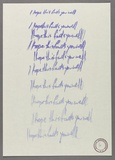 I hope this finds you well
I hope this finds you well
I hope this finds you well
I hope this finds you well
I hope this finds you well
I hope this finds you well
I hope this finds you well
I hope this finds you well
I hope this finds you well
I hope this finds you well
I hope this finds you well